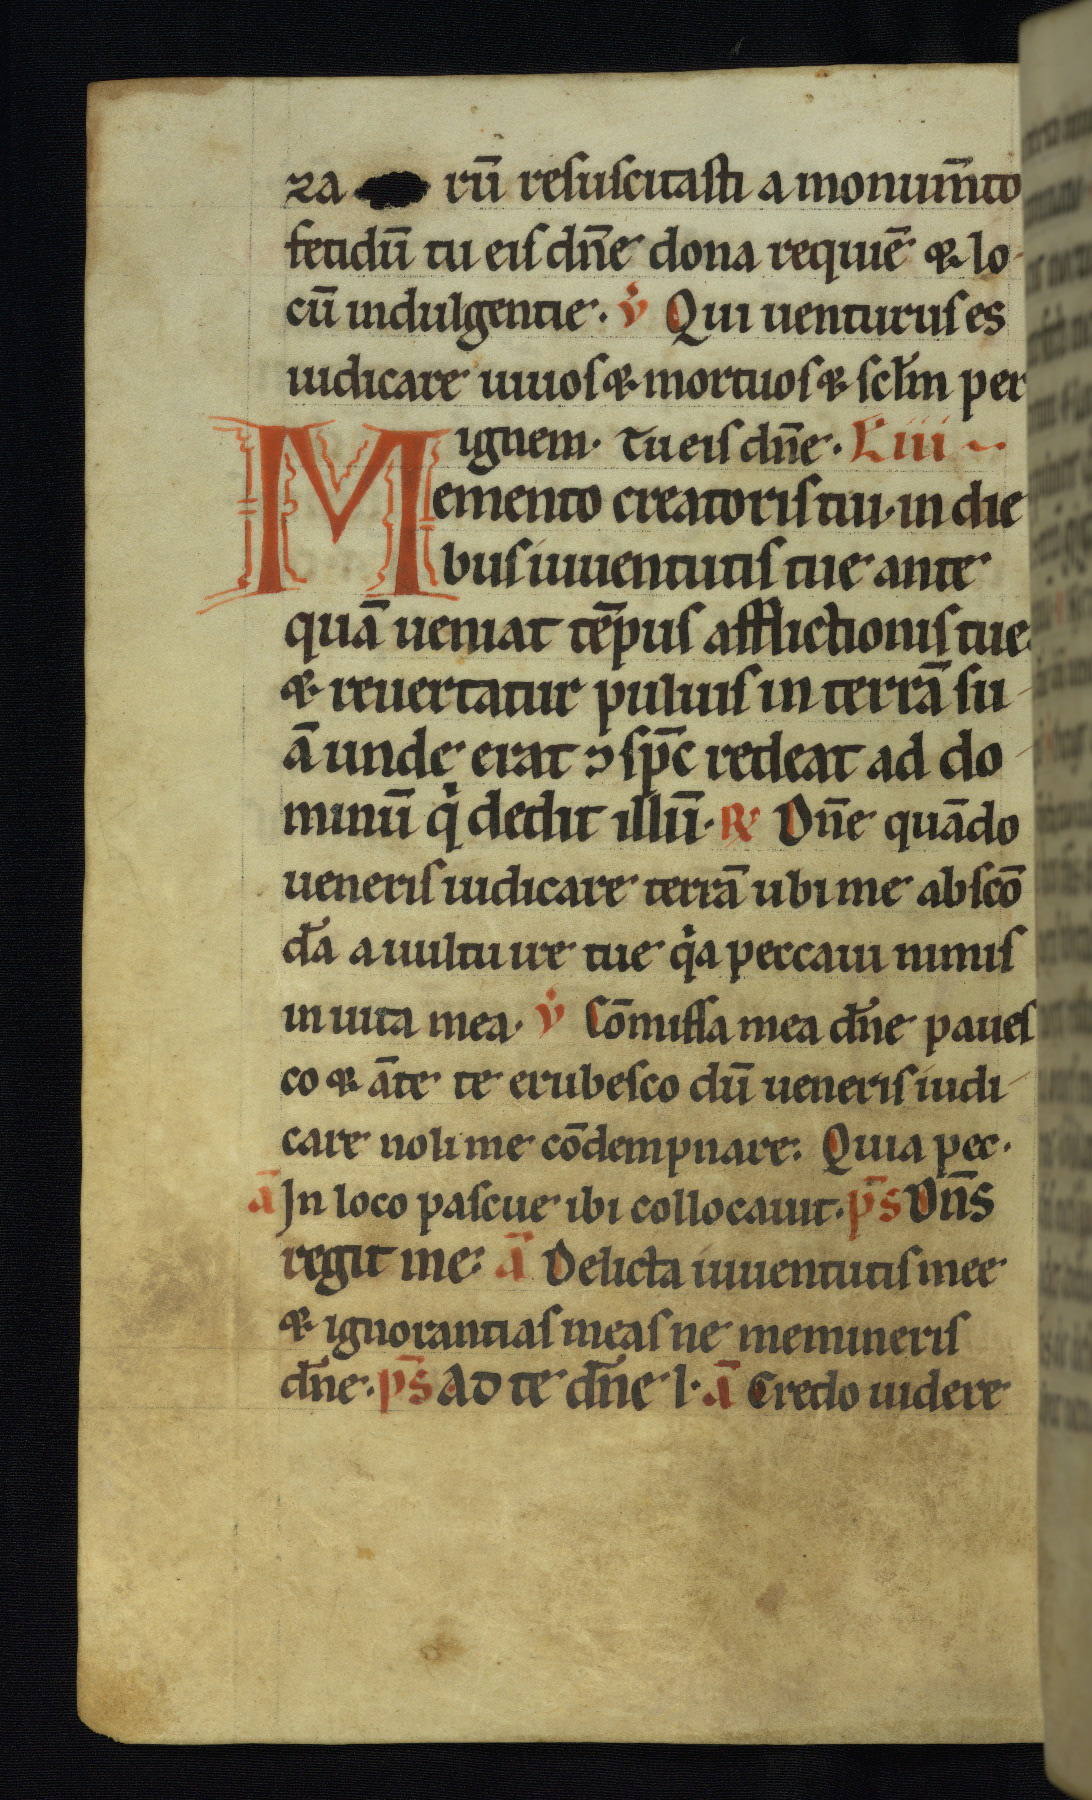 za rū resuscitasti a monum̄to
fetidū tu eis dn̄e dona requiē & lo
cū indulgentie. v̇ Qui uenturus es
iudicare uiuos & mortuos & sclm̄ per
ignem. Tu eis dn̄e. L iii
Memento creatoris tui. in die
bus iuuentutis tue ante
quā ueniat tēpus afflictionis tue.
& reuertatur puluis in terrā su
ā unde erat ⁊ sp̄c redeat ad do
minū q̇ dedit illū. R̷ Dn̄e quādo
ueneris iudicare terrā ubi me abscō
dā a uultu ire tue q̇a peccaui nimis
in uita mea. v̇ Cōmissa mea dn̄e paues
co & āte te erubesco dū ueneris iudi
care noli me cōdempnare: Quia pec.
ā In loco pascue ibi collocauit. p̄s Dn̄s
regit me: ā Delicta iuuentutis mee
& ignorantias meas ne memineris
dn̄e. p̄s Ad te dn̄e l. ā Credo uidere